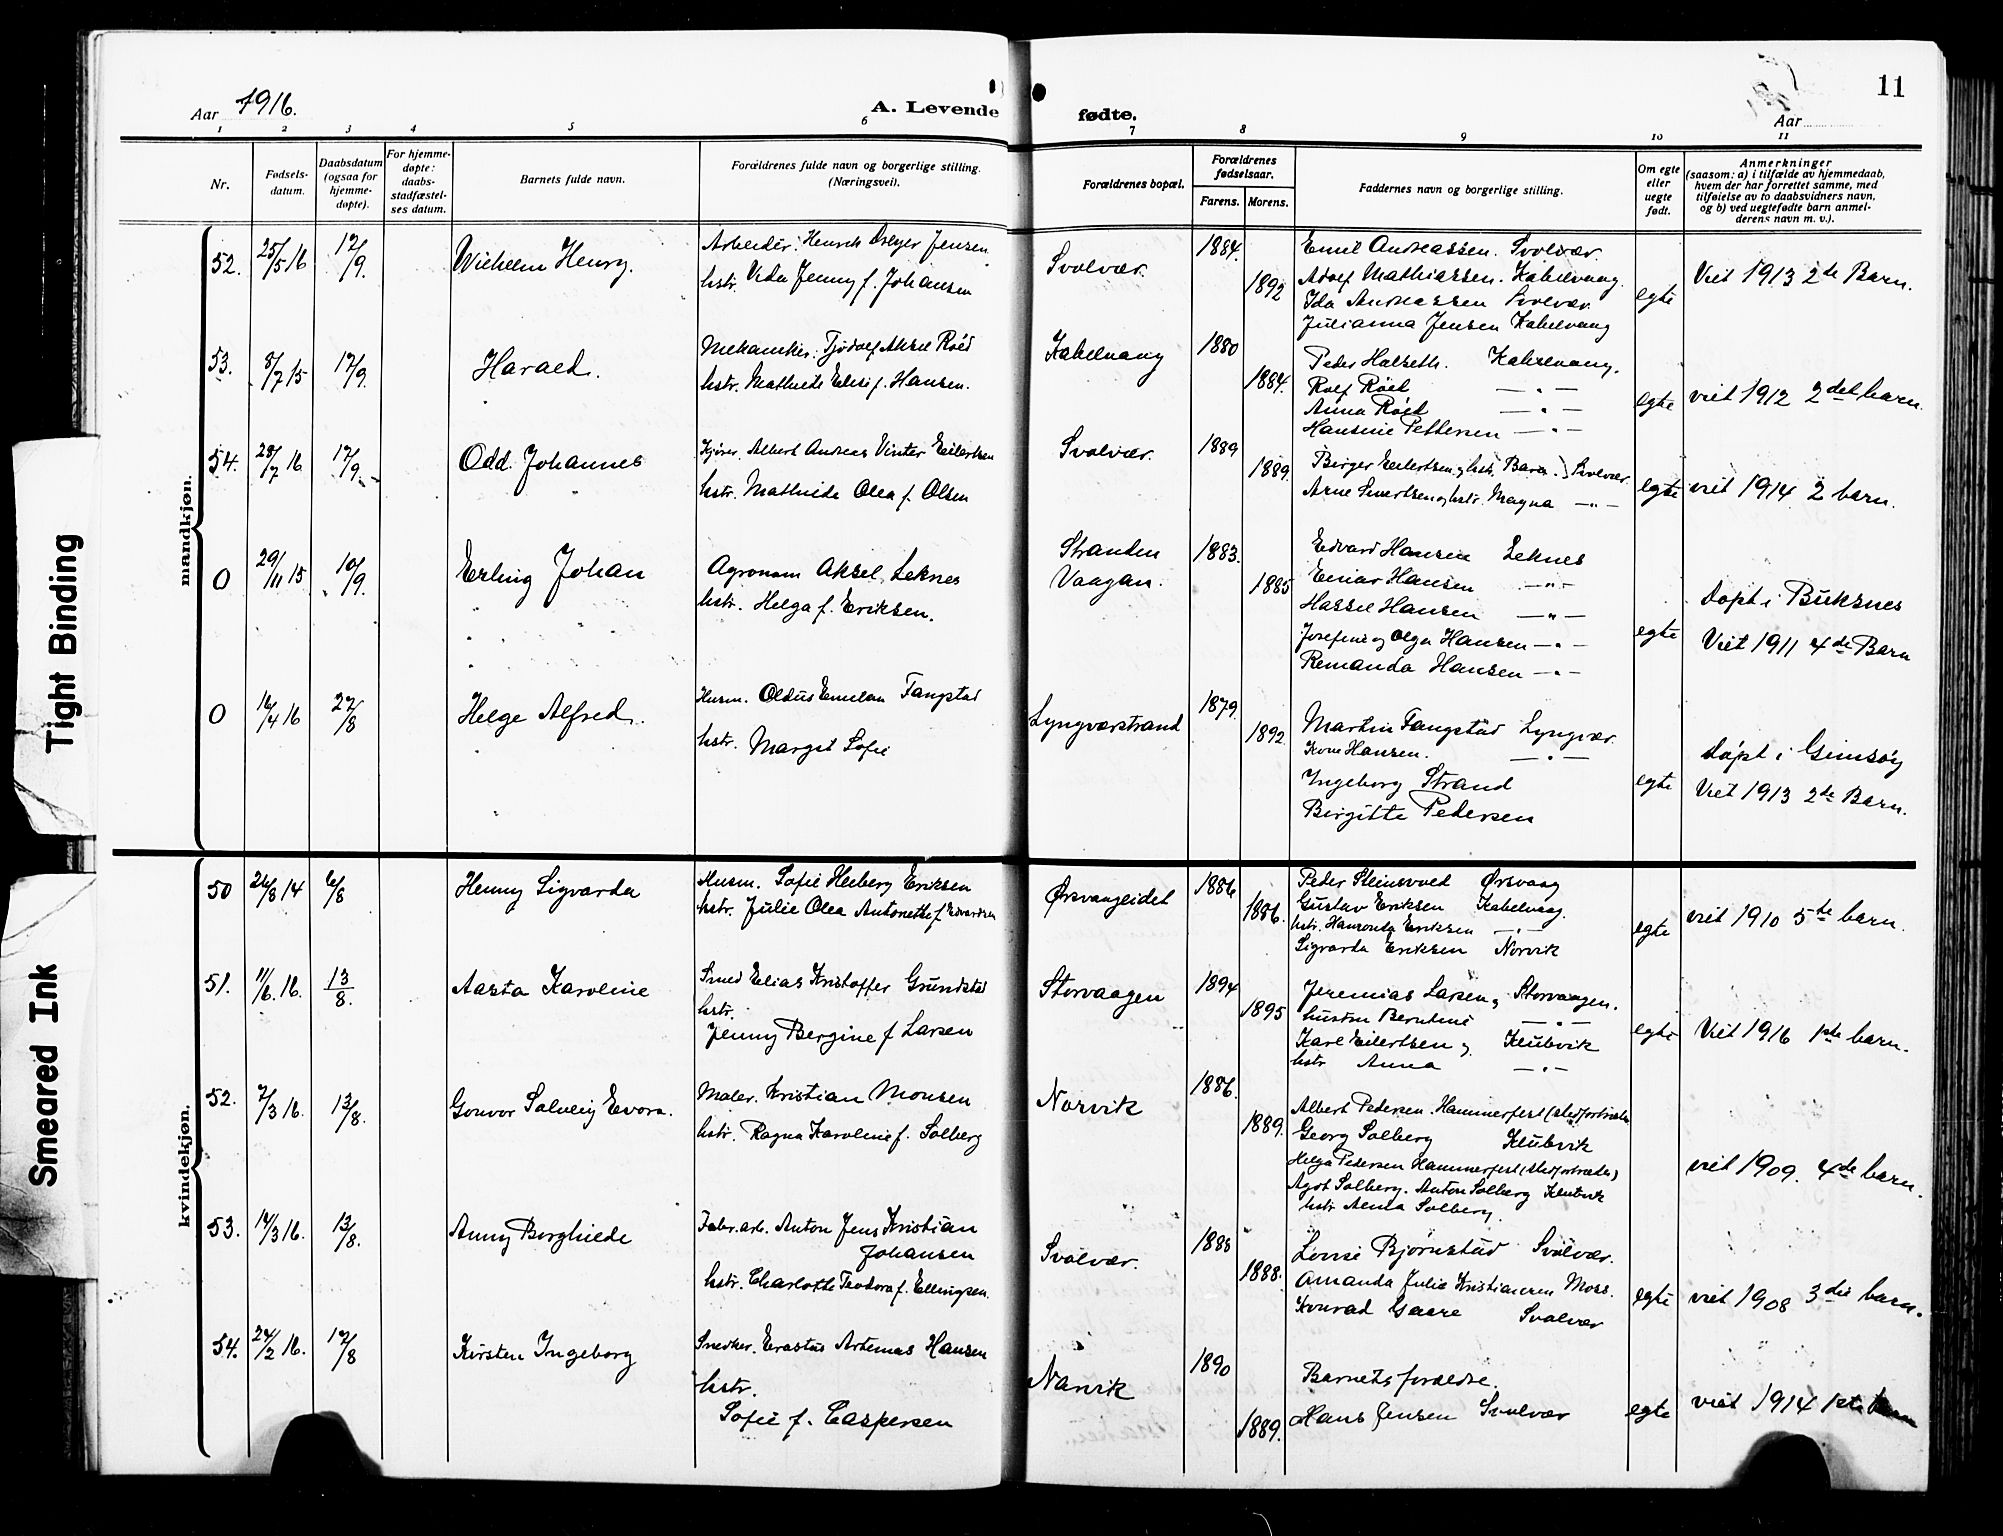 Aar 1916.
A. Levende fødte.
11
Aar
1 2 3 4 5 6 7 8 9 10 11
Nr.
Fødsels-
datum.
Daabsdatum
(ogsaa for
hjemme-
døpte).
For hjemme-
døpte:
daabs-
stadfæstel-
ses datum.
Barnets fulde navn.
Forældrenes fulde navn og borgerlige stilling.
(Næringsvei).
Forældrenes bopæl.
Forældrenes
fødselsaar.
Farens. Morens.
Faddernes navn og borgerlige stilling.
Om egte
eller
uegte
født.
Anmerkninger
(saasom: a) i tilfælde av hjemmedaab,
hvem der har forrettet samme, med
tilføielse av to daabsvidners navn,
og b) ved uegtefødte barn anmel-
derens navn m. v.).
mandkjøn.
52. 25/5 16 17/9. Wilhelm Henry.
Arbeider. Henrik Dreyer Jensen
hstr. Vida Jenny f. Johansen
Svolvær. 1884. 1892
Emil Andreassen. Svolvær.
Adolf Mathiassen. Kabelvaag.
Ida Andreassen Svolvær.
Julianna Jensen Kabelvaag
egte Viet 1913 2de Barn.
53. 8/7 15 17/9. Harald.
Mekaniker. Tjodolf Aksel Röed
hstr. Mathilde Elise f. Hansen.
Kabelvaag 1880 1884.
Peder Halseth. Kabelvaag.
Rolf Röed — " —
Anna Röed — " —
Hansine Pettersen — " —
egte viet 1912 2det barn.
54. 28/7 16 17/9. Odd. Johannes
Kjører. Albert Andreas Vinter Eilertsen
hstr. Mathilde Olea f. Olsen
Svolvær. 1889 1889.
Birger Eilertsen og hstr. Bara.) Svolvær.
Arne Sivertsen og hstr. Magna — " —
egte viet 1914 2 barn.
0 29/11 15 10/9. Erling Johan
Agronom Aksel. Leknes
hstr. Helga f. Eriksen.
Stranden
Vaagan. 1883. 1885
Edvard Hansen Leknes
Einar Hansen — " —
Hassel Hansen — " —
Josefine og Olga Hansen — " —
Remanda Hansen — " —
egte
Døpt i Buksnes
Viet 1911 4de Barn
0 16/4 16 27/8 Helge Alfred.
Husm. Oldus Emelan Fangstad
hstr. Margit Sofie
Lyngværstrand 1879. 1892
Martin Fangstad Lyngvær.
Kone Hansen. — " —
Ingeborg Strand
Birgitte Pedersen
egte
Døpt i Gimsøy
Viet 1913 2de Barn.
kvindekjøn.
50 26/8 14 6/8 Henny Sigvarda
Husm. Sofie Heiberg Eriksen
hstr. Julie Olea Antonette f. Edvardsen
Ørsvaageidet 1886 1886.
Peder Steinsvoed Ørsvaag
Gustav Eriksen Kabelvaag.
hstr. Hansonda Eriksen — " —
Sigvarda Eriksen Norvik
egte viet 1910 5te barn.
51. 11/6. 16. 13/8. Aasta Karoline
Smed Elias Kristoffer Grundstad
hstr.
Jenny Bergine f Larsen
Storvaagen 1894 1895
Jeremias Larsen, Storvaagen.
hustru Berntine — " —
Karl Eilertsen og Kleibvik
hstr Anna — " —
egte Viet 1916 1ste barn.
52. 7/3 16. 13/8. Gonvor Solveig Evora.
Maler. Kristian Monsen
hstr. Ragna Karoline f. Solberg
Narvik 1886. 1889.
Albert Pedersen. Hammerfest (stedfortræder
Georg Solberg Kleibvik
Helga Pedersen Hammerfest (stedfortræder)
Agot Solberg. Anton Solberg Kleibvik
hstr Alenda Solberg.
viet 1909. 4de barn.
53. 14/3 16. 13/8. Anny Borghilde
Fabr. arb. Anton Jens Kristian
Johansen
hstr. Charlotte Teodora f. Ellingsen.
Svolvær. 1888 1888.
Lovise Bjørnstad Svolvær.
Amanda Julie Kristiansen Moss.
Konrad Gaare Svolvær
egte viet 1908 3die barn.
54. 24/2 16. 17/8 Kirsten Ingeborg
Snedker. Erastus Artemas Hansen
hstr.
Sofie f. Caspersen
Narvik 1890 1889.
Barnets forældre.
Hans Jensen Svolvær
egte viet 1914 1ste barn
Tight Binding
Smeared Ink